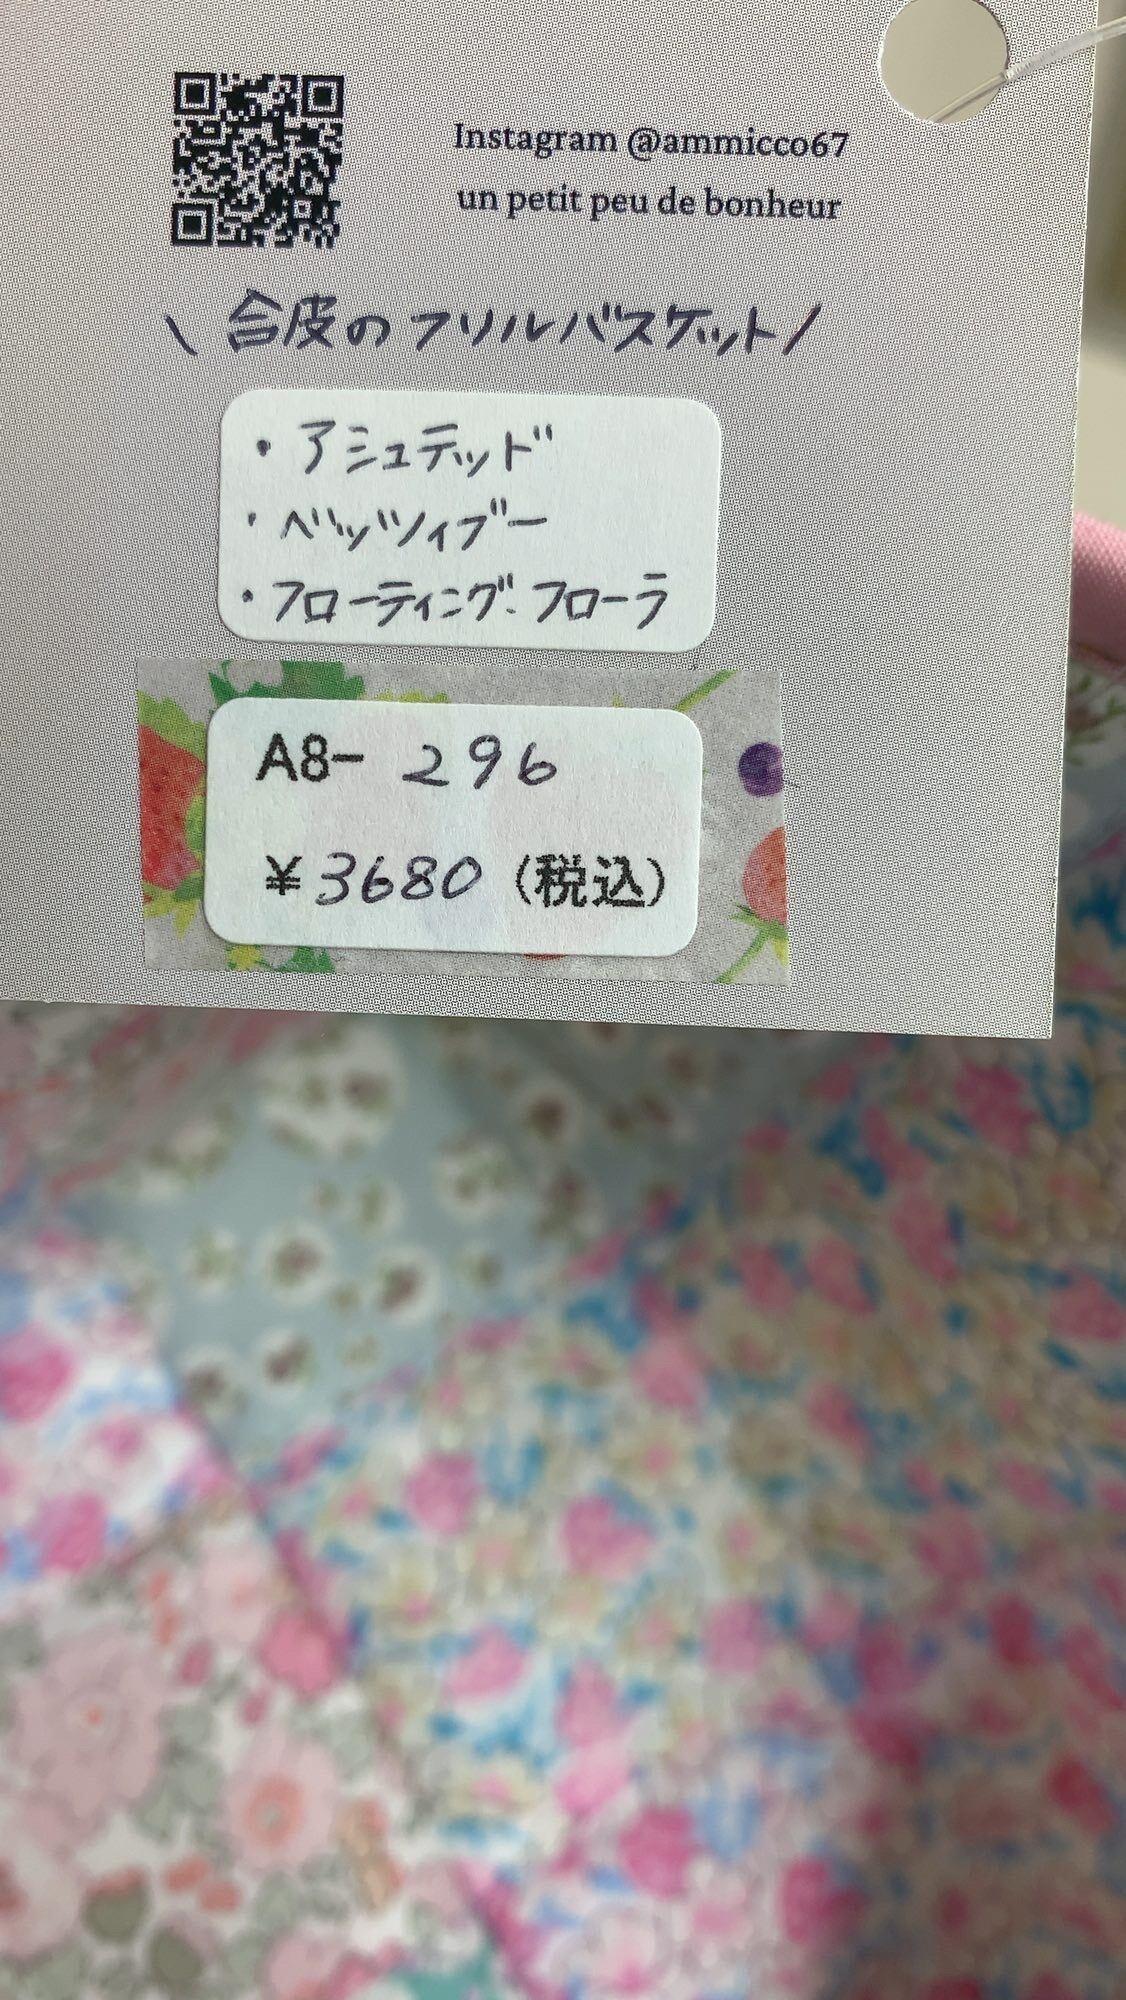 Instagram @ammicco67
un petit peu de bonheur
\ 合皮のフリルバスケット /
・アシュテッド
・ベッツィブー
・フローティング・フローラ
A8- 296
¥3680 (税込)